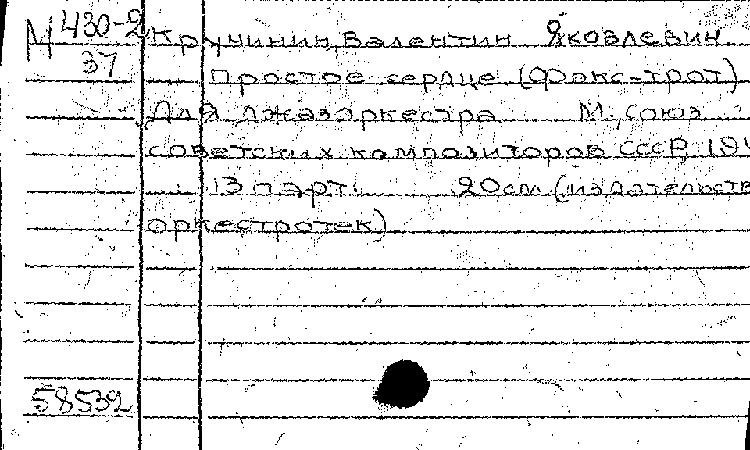 М 430-2
37
Кручинин, Валентин Яковлевич
Простое сердце (Факс-трот)
Для джазоркестра М, союз
советских композиторов СССР, 194
13 парт. 20см (издательств
оркестротек)
58532